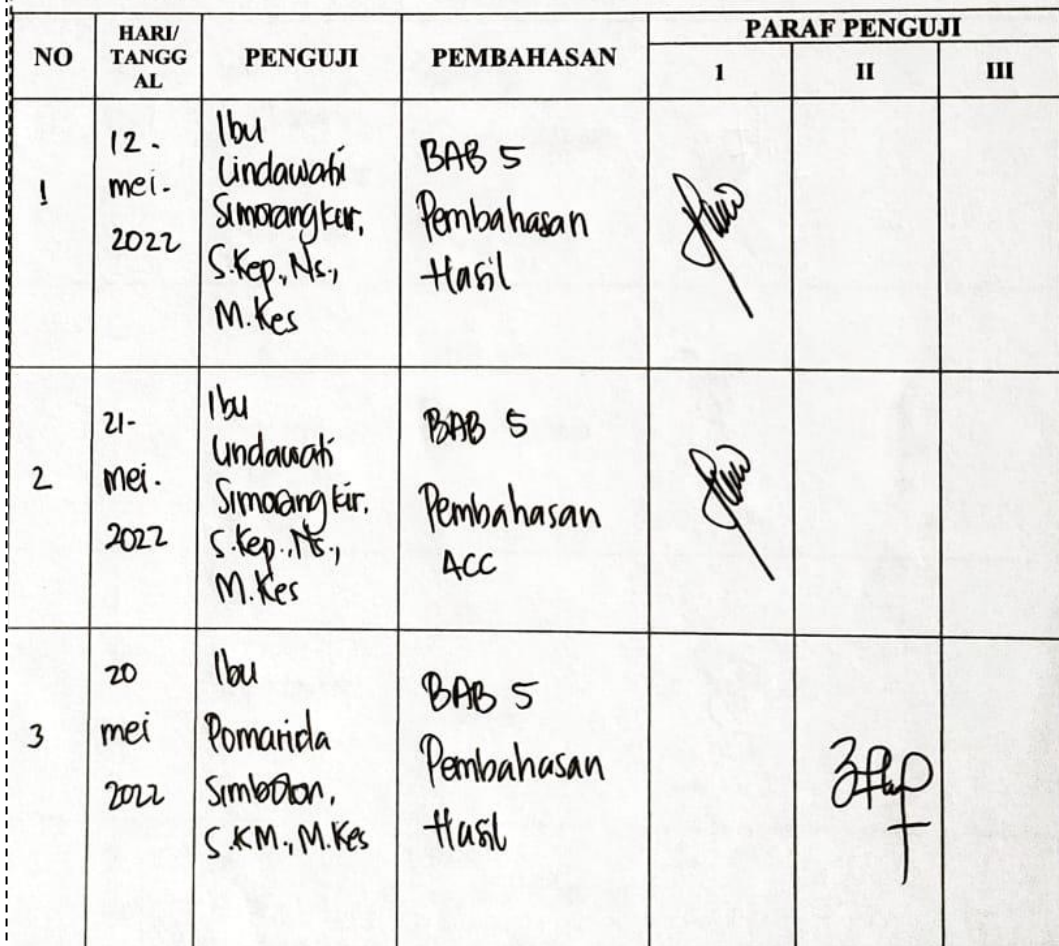 NO
HARI/
TANGG
AL
PENGUJI
PEMBAHASAN
PARAF PENGUJI
1
II
III
1
12.
mei.
2022
Ibu
Lindawati
Simorangkir,
S.Kep.,Ns.,
M.Kes
BAB 5
Pembahasan
Hasil
2
21-
mei.
2022
Ibu
Lindawati
Simorangkir.
S.Kep.,Ns.,
M.Kes
BAB 5
Pembahasan
ACC
3
20
mei
2022
Ibu
Pomarida
Simbolon,
S.KM., M.Kes
BAB 5
Pembahasan
Hasil